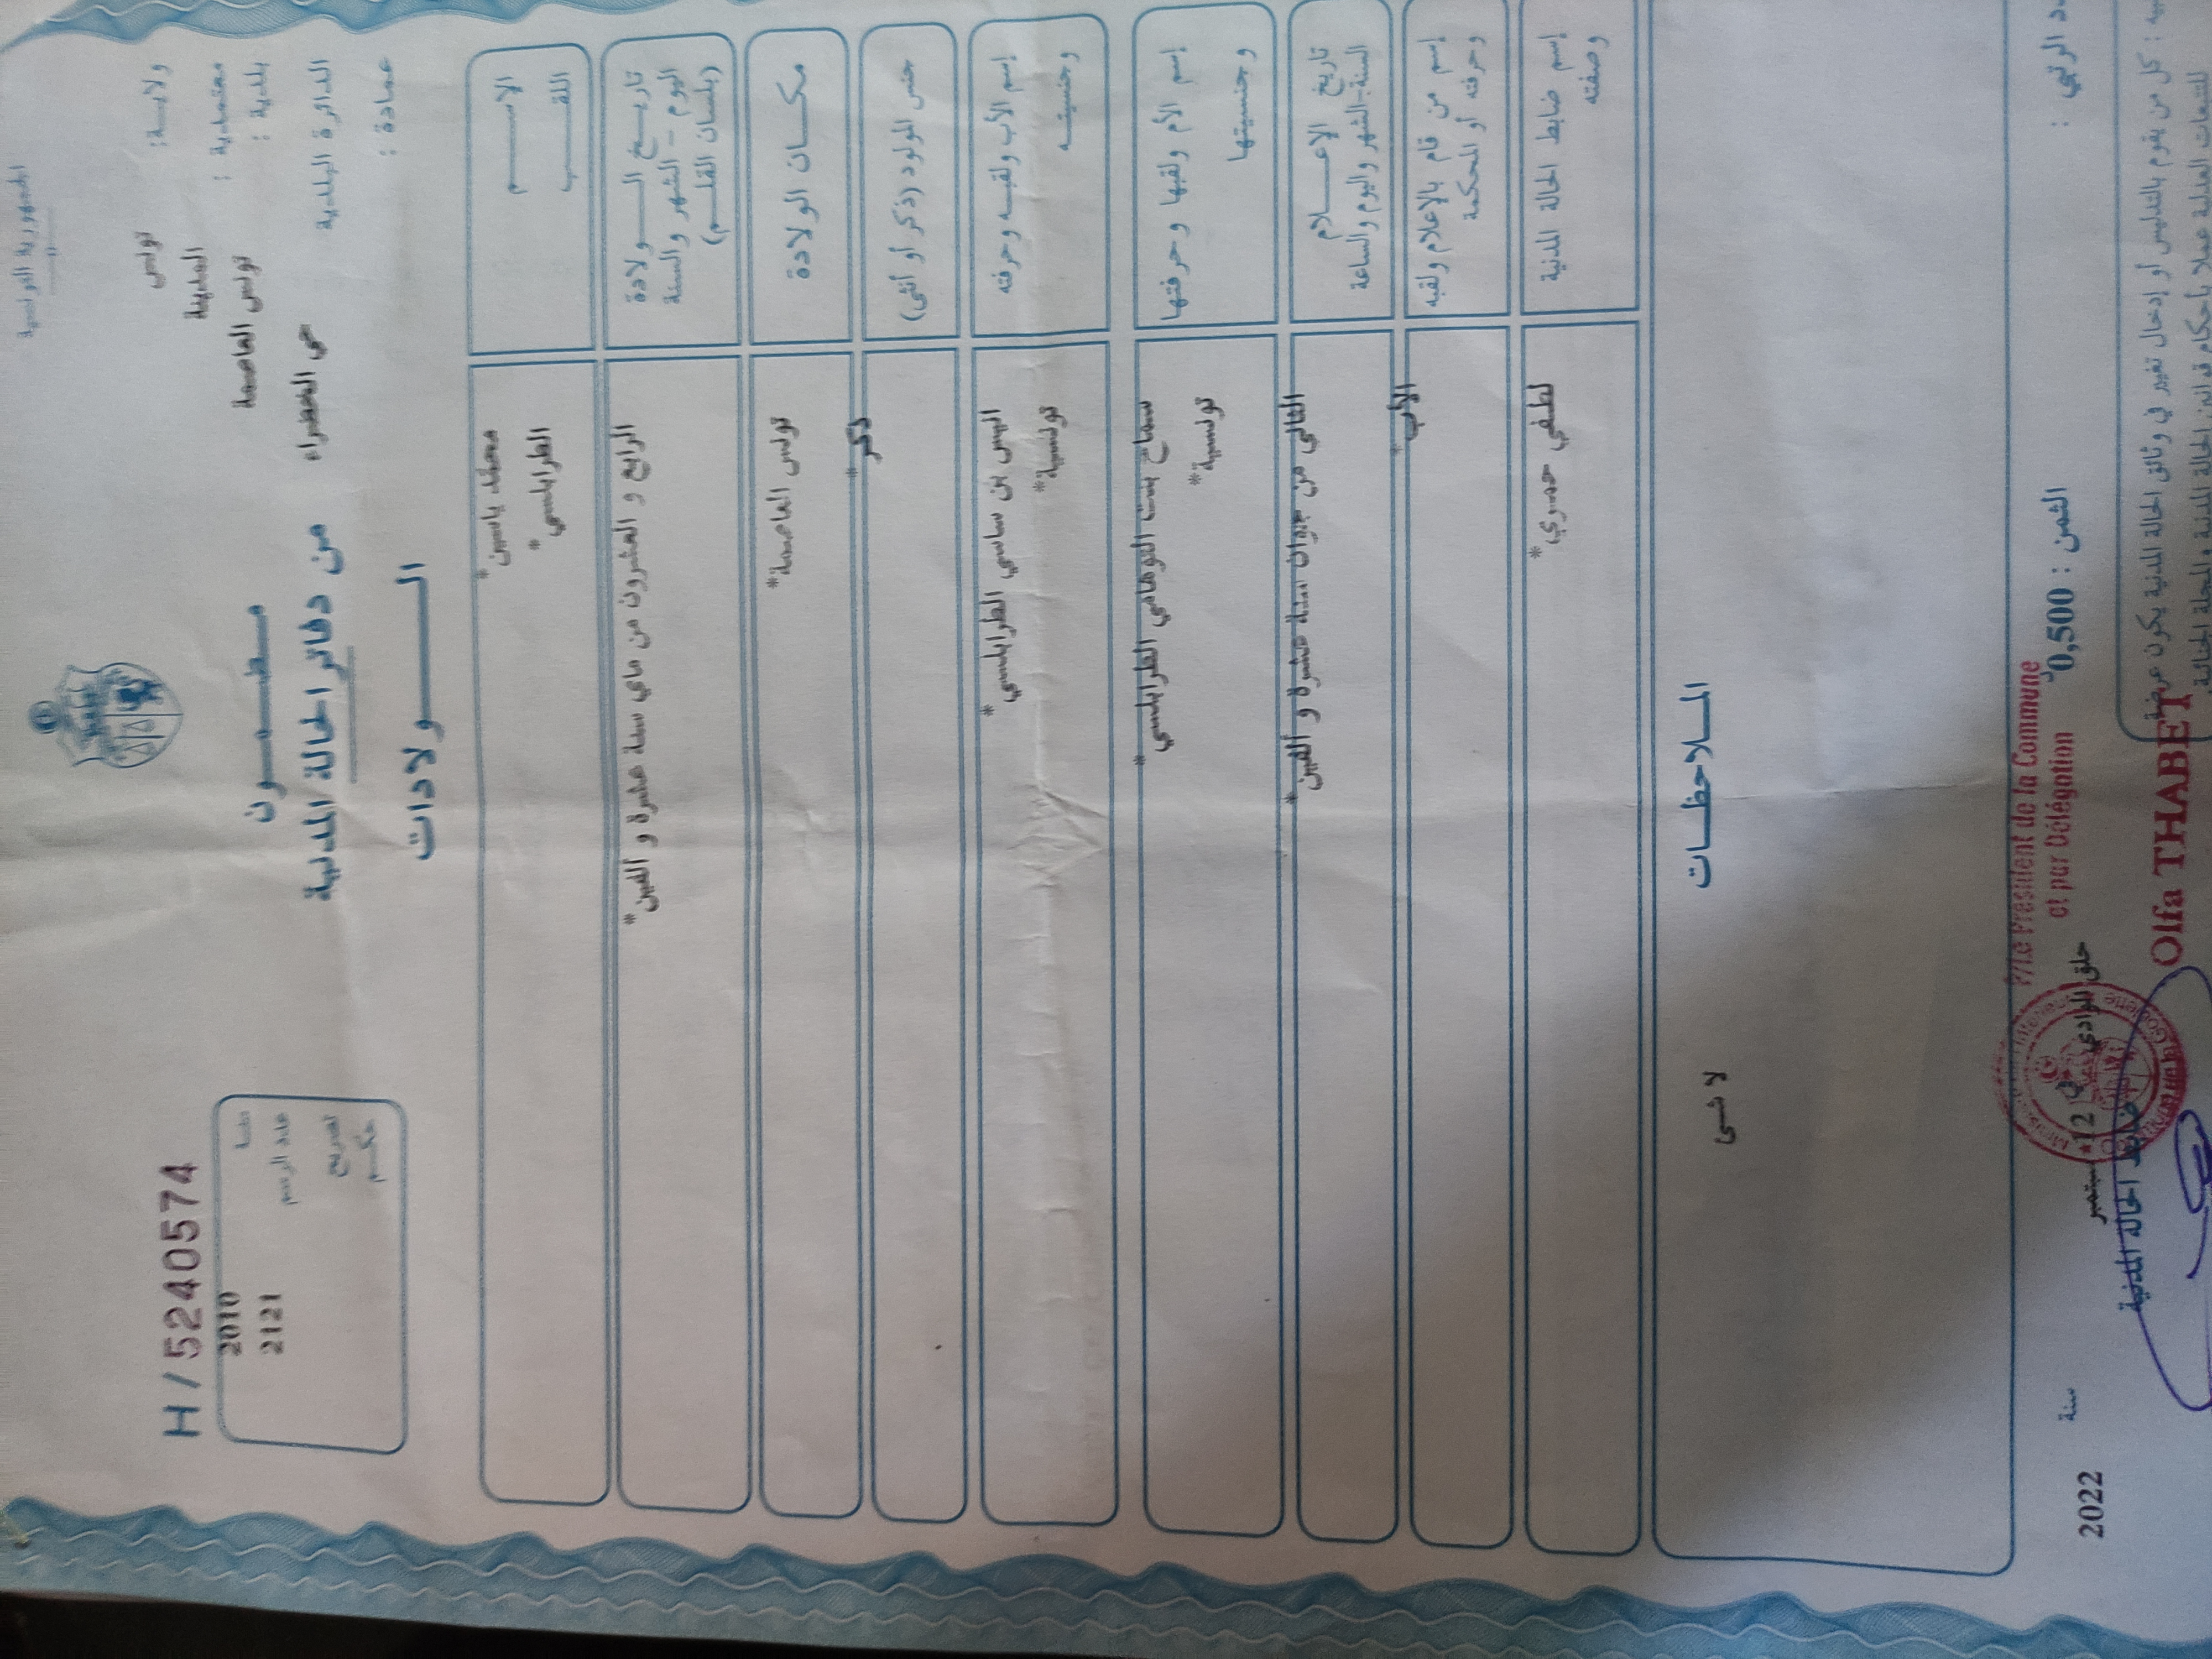 الجمهورية التونسية
ولاية : تونس
معتمدية : المدينة
بلدية : تونس العاصمة
الدائرة البلدية حي الخضراء
عمادة :
H / 5240574
سنة 2010
عدد الرسم 2121
تصريح
حكم
مضمون
من دفاتر الحالة المدنية
الولادات
الاسم محمد ياسين*
اللقب الطرابلسي*
تاريخ الولادة
اليوم - الشهر والسنة
(بلسان القلم)
الرابع و العشرون من ماي سنة عشرة و ألفين*
مكان الولادة تونس العاصمة*
جنس المولود (ذكر أو أنثى) ذكر*
إسم الأب ولقبه وحرفته
وجنسيته
بن ساسي الطرابلسي*
تونسية*
إسم الأم ولقبها وحرفتها
وجنسيتها
سماح بنت التوهامي الطرابلسي*
تونسية*
تاريخ الإعلام
السنة-الشهر واليوم والساعة
الثاني من جوان سنة عشرة و ألفين*
إسم من قام بالإعلام ولقبه
وحرفته أو المحكمة
الأب*
إسم ضابط الحالة المدنية
وصفته
لطفي حمدي*
الملاحظات
لا شىء
الثمن : 0,500
حلق الوادي في 12 سبتمبر سنة 2022
ضابط الحالة المدنية
P/Le Président de la Commune
et par Délégation
Olfa THABET
كل من يقوم بالتدليس أو إدخال تغيير في وثائق الحالة المدنية يكون عرضة